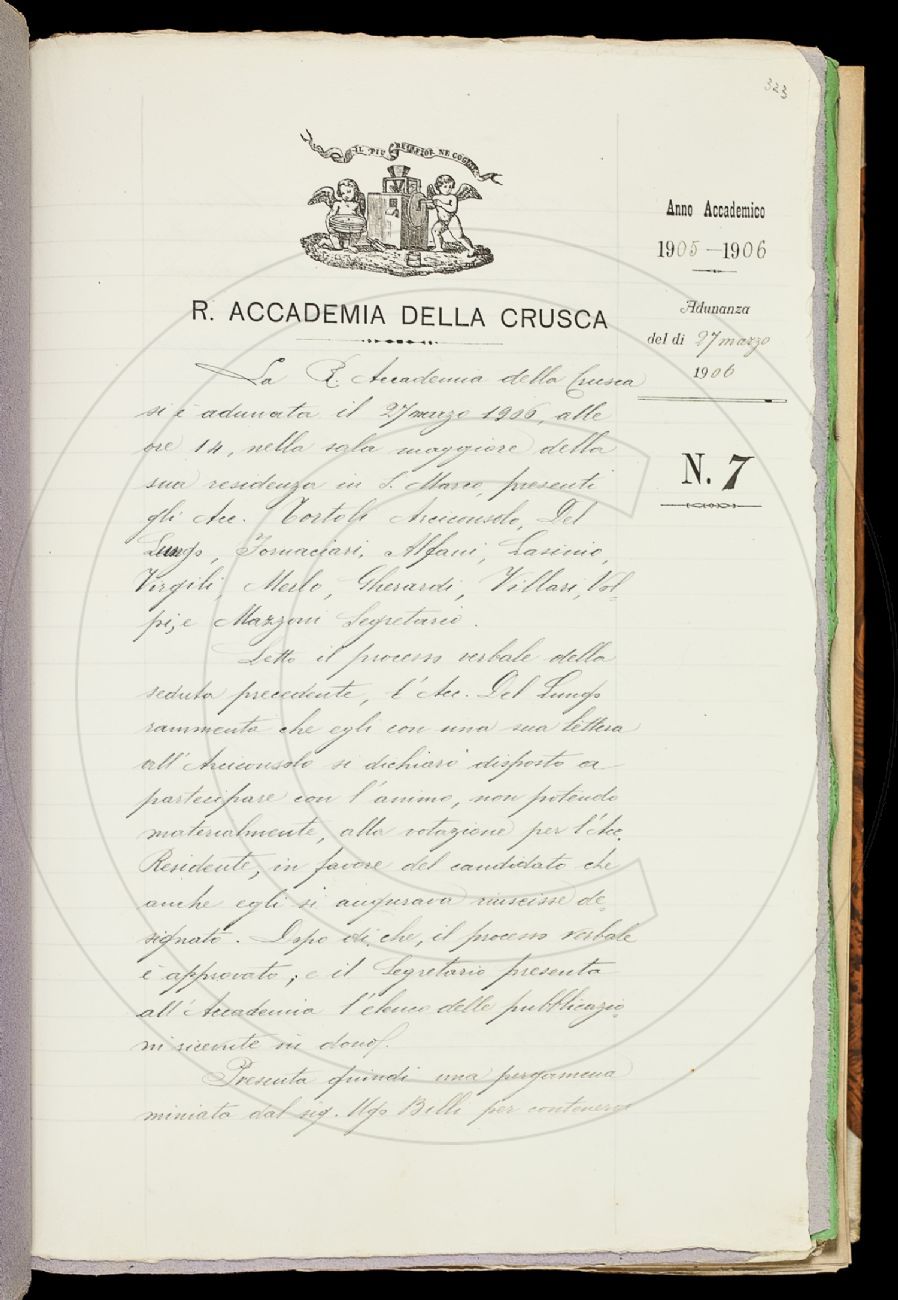 323
IL PIÙ BEL FIOR NE COGLIE
R. ACCADEMIA DELLA CRUSCA
Anno Accademico
1905-1906
Adunanza
del dì 27 marzo
1906
N. 7
La R. Accademia della Crusca
si è adunata il 27 marzo 1906, alle
ore 14, nella sala maggiore della
sua residenza in S. Marco, presenti
gli Acc. Tortoli Arciconsolo, Del
Lungo, Fornaciari, Alfani, Lasinio,
Virgili, Merlo, Gherardi, Villari, Vol-
pi, e Mazzoni Segretario.
Letto il processo verbale della
seduta precedente, l'Acc. Del Lungo
rammenta che egli con una sua lettera
all'Arciconsolo si dichiarò disposto a
partecipare con l'animo, non potendo
materialmente, alla votazione per l'Acc.
Residente, in favore del candidato che
anche egli si augurava riuscisse de-
signato. Dopo di che, il processo verbale
è approvato; e il Segretario presenta
all'Accademia l'elenco delle pubblicazio-
ni ricevute in dono.
Presenta quindi una pergamena
miniata dal sig. Ugo Billi per contenere